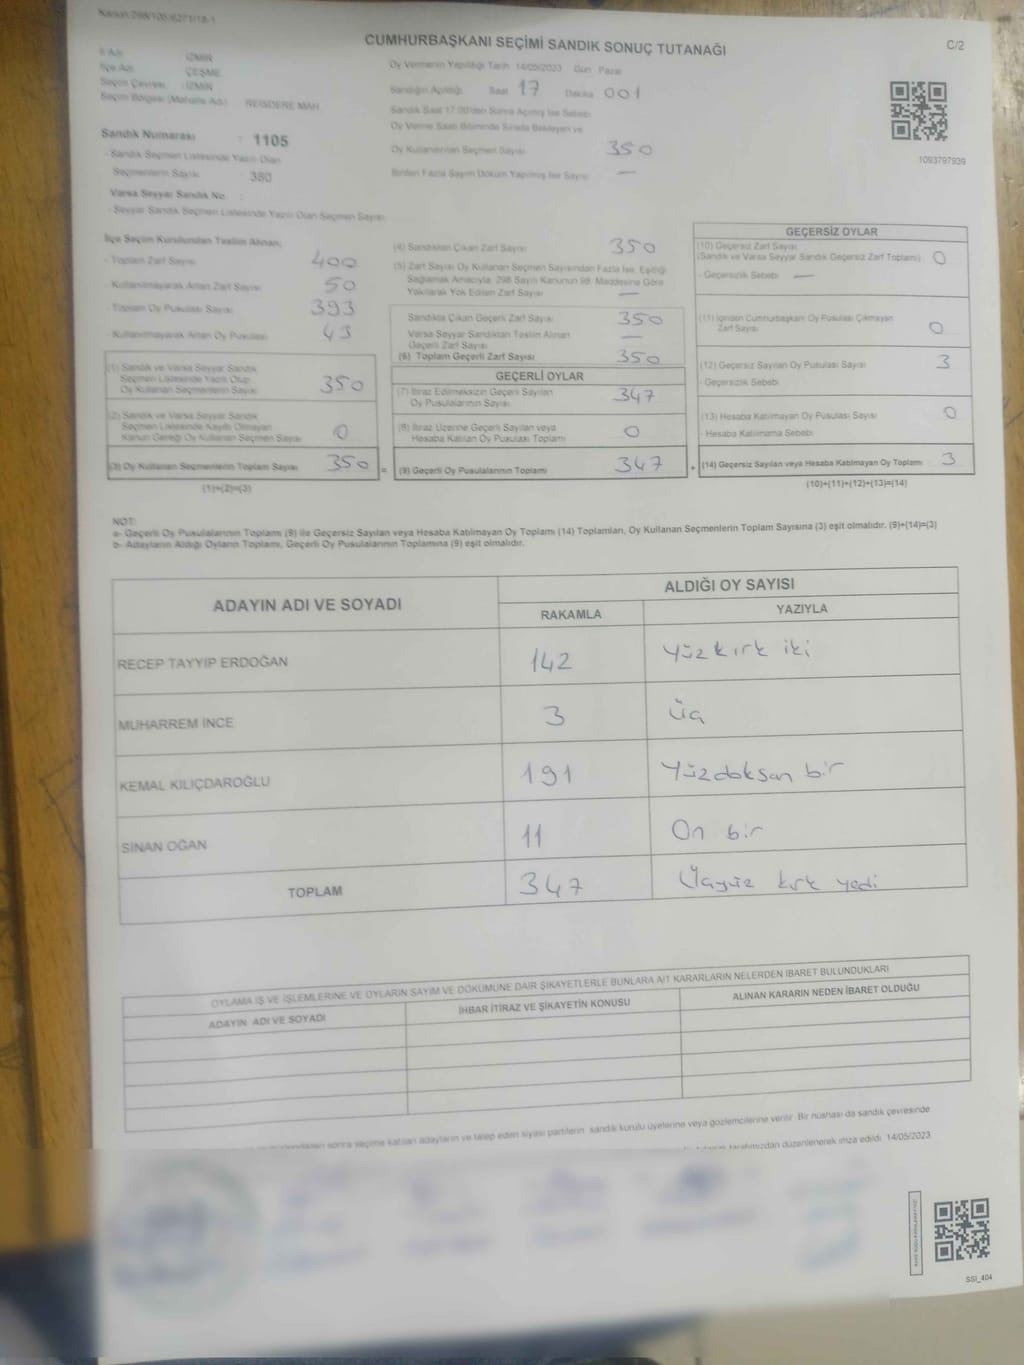 Kanun:298/105/6271/18-1
C/2
CUMHURBAŞKANI SEÇİMİ SANDIK SONUÇ TUTANAĞI
İl Adı : İZMİR
İlçe Adı : ÇEŞME
Seçim Çevresi : İZMİR
Seçim Bölgesi (Mahalle Adı) : REİSDERE MAH
Sandık Numarası : 1105
- Sandık Seçmen Listesinde Yazılı Olan
Seçmenlerin Sayısı 380
Varsa Seyyar Sandık No :
- Seyyar Sandık Seçmen Listesinde Yazılı Olan Seçmen Sayısı
Oy Vermenin Yapıldığı Tarih 14/05/2023 Gün Pazar
Sandığın Açıldığı Saat 17 Dakika 001
Sandık Saat 17.00'den Sonra Açılmış İse Sebebi
Oy Verme Saati Bitiminde Sırada Bekleyen ve
Oy Kullandırılan Seçmen Sayısı 350
Birden Fazla Sayım Döküm Yapılmış İse Sayısı —
1093797939
İlçe Seçim Kurulundan Teslim Alınan;
- Toplam Zarf Sayısı 400
- Kullanılmayarak Artan Zarf Sayısı 50
- Toplam Oy Pusulası Sayısı 393
- Kullanılmayarak Artan Oy Pusulası 43
(1) Sandık ve Varsa Seyyar Sandık
Seçmen Listesinde Yazılı Olup
Oy Kullanan Seçmenlerin Sayısı 350
(2) Sandık ve Varsa Seyyar Sandık
Seçmen Listesinde Kayıtlı Olmayan
Kanun Gereği Oy Kullanan Seçmen Sayısı 0
(3) Oy Kullanan Seçmenlerin Toplam Sayısı 350
(1)+(2)=(3)
(4) Sandıktan Çıkan Zarf Sayısı 350
(5) Zarf Sayısı Oy Kullanan Seçmen Sayısından Fazla İse, Eşitliği
Sağlamak Amacıyla, 298 Sayılı Kanunun 98. Maddesine Göre
Yakılarak Yok Edilen Zarf Sayısı —
Sandıkta Çıkan Geçerli Zarf Sayısı 350
Varsa Seyyar Sandıktan Teslim Alınan
Geçerli Zarf Sayısı —
(6) Toplam Geçerli Zarf Sayısı 350
GEÇERLİ OYLAR
(7) İtiraz Edilmeksizin Geçerli Sayılan
Oy Pusulalarının Sayısı 347
(8) İtiraz Üzerine Geçerli Sayılan veya
Hesaba Katılan Oy Pusulası Toplamı 0
= (9) Geçerli Oy Pusulalarının Toplamı 347
GEÇERSİZ OYLAR
(10) Geçersiz Zarf Sayısı
(Sandık ve Varsa Seyyar Sandık Geçersiz Zarf Toplamı) 0
- Geçersizlik Sebebi —
(11) İçinden Cumhurbaşkanı Oy Pusulası Çıkmayan
Zarf Sayısı 0
(12) Geçersiz Sayılan Oy Pusulası Sayısı 3
- Geçersizlik Sebebi
(13) Hesaba Katılmayan Oy Pusulası Sayısı 0
- Hesaba Katılmama Sebebi
+ (14) Geçersiz Sayılan veya Hesaba Katılmayan Oy Toplamı 3
(10)+(11)+(12)+(13)=(14)
NOT:
a- Geçerli Oy Pusulalarının Toplamı (9) ile Geçersiz Sayılan veya Hesaba Katılmayan Oy Toplamı (14) Toplamları, Oy Kullanan Seçmenlerin Toplam Sayısına (3) eşit olmalıdır. (9)+(14)=(3)
b- Adayların Aldığı Oyların Toplamı, Geçerli Oy Pusulalarının Toplamına (9) eşit olmalıdır.
ADAYIN ADI VE SOYADI
ALDIĞI OY SAYISI
RAKAMLA YAZIYLA
RECEP TAYYİP ERDOĞAN 142 Yüz kırk iki
MUHARREM İNCE 3 Üç
KEMAL KILIÇDAROĞLU 191 Yüzdoksan bir
SİNAN OĞAN 11 On bir
TOPLAM 347 Üçyüz kırk yedi
OYLAMA İŞ VE İŞLEMLERİNE VE OYLARIN SAYIM VE DÖKÜMÜNE DAİR ŞİKAYETLERLE BUNLARA AİT KARARLARIN NELERDEN İBARET BULUNDUKLARI
ADAYIN ADI VE SOYADI İHBAR İTİRAZ VE ŞİKAYETİN KONUSU ALINAN KARARIN NEDEN İBARET OLDUĞU
sonra seçime katılan adayların ve talep eden siyasi partilerin sandık kurulu üyelerine veya gözlemcilerine verilir. Bir nüshası da sandık çevresinde
tarafımızdan düzenlenerek imza edildi. 14/05/2023
SSI_404